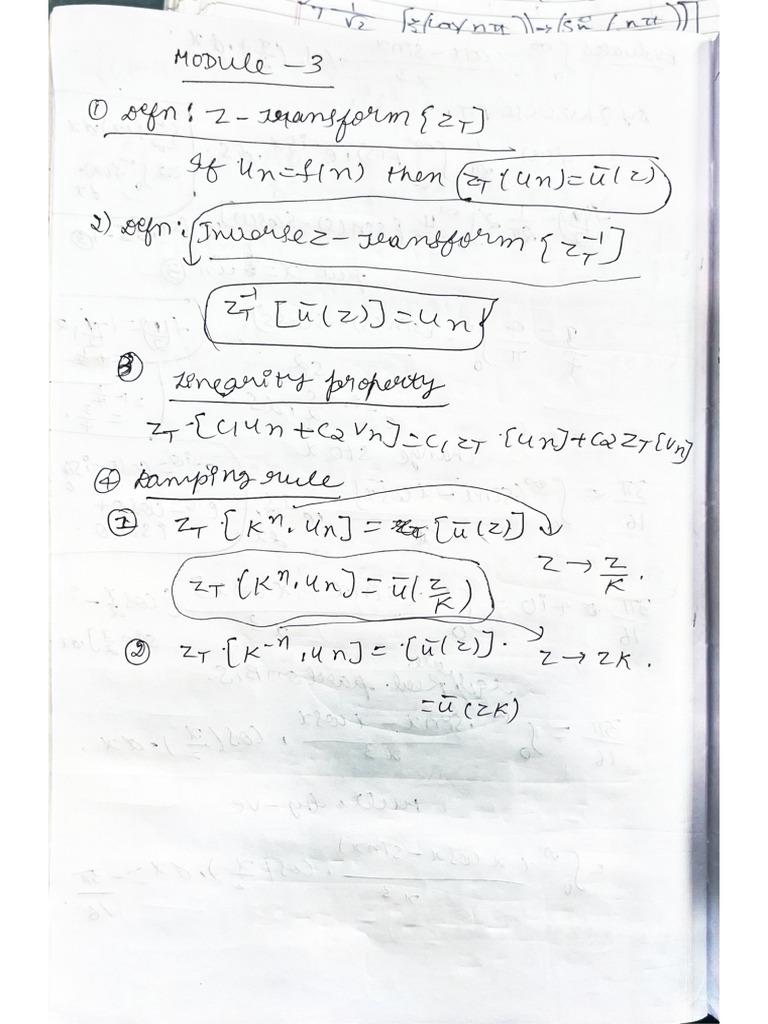 MODULE - 3
① Defn: Z - Transform {Z_T]
If Un = f(n) then Z_T (Un) = ū(z)
2) Defn: Inverse Z - Transform {Z_T⁻¹]
Z_T⁻¹ [ū(z)] = Un
③ Linearity property
Z_T · [C₁Un + C₂Vn] = C₁Z_T · [Un] + C₂Z_T [Vn]
④ Damping rule
① Z_T · [Kⁿ. Un] = [ū(z)] z → z/K.
Z_T (Kⁿ. Un] = ū(z/K)
② Z_T · [K⁻ⁿ. Un] = [ū(z)]. z → zK.
= ū(zK)